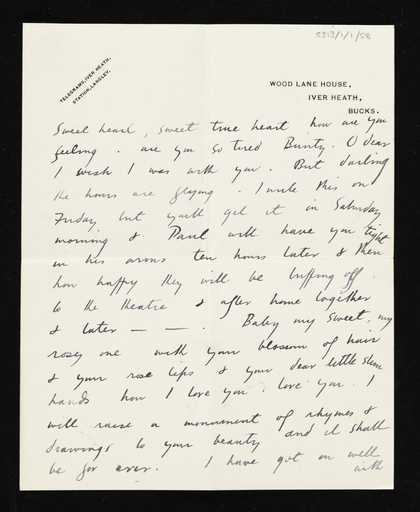 8313/1/1/58
TELEGRAMS, IVER HEATH.
STATION, LANGLEY.
WOOD LANE HOUSE,
IVER HEATH,
BUCKS.
Sweet heart, sweet true heart how are you
feeling. are you so tired Bunty. O dear
I wish I was with you. But darling
the hours are flying. I write this on
Friday but youll get it on Saturday
morning & Paul will have you tight
in his arms ten hours later & then
how happy they will be buffing off
to the theatre & after home together
& later — — . Baby my sweet, my
rosey one with your blossom of hair
& your rose lips & your dear little slim
hands how I love you. love you. I
will raise a monument of rhymes &
drawings to your beauty and it shall
be for ever. I have got on well
with